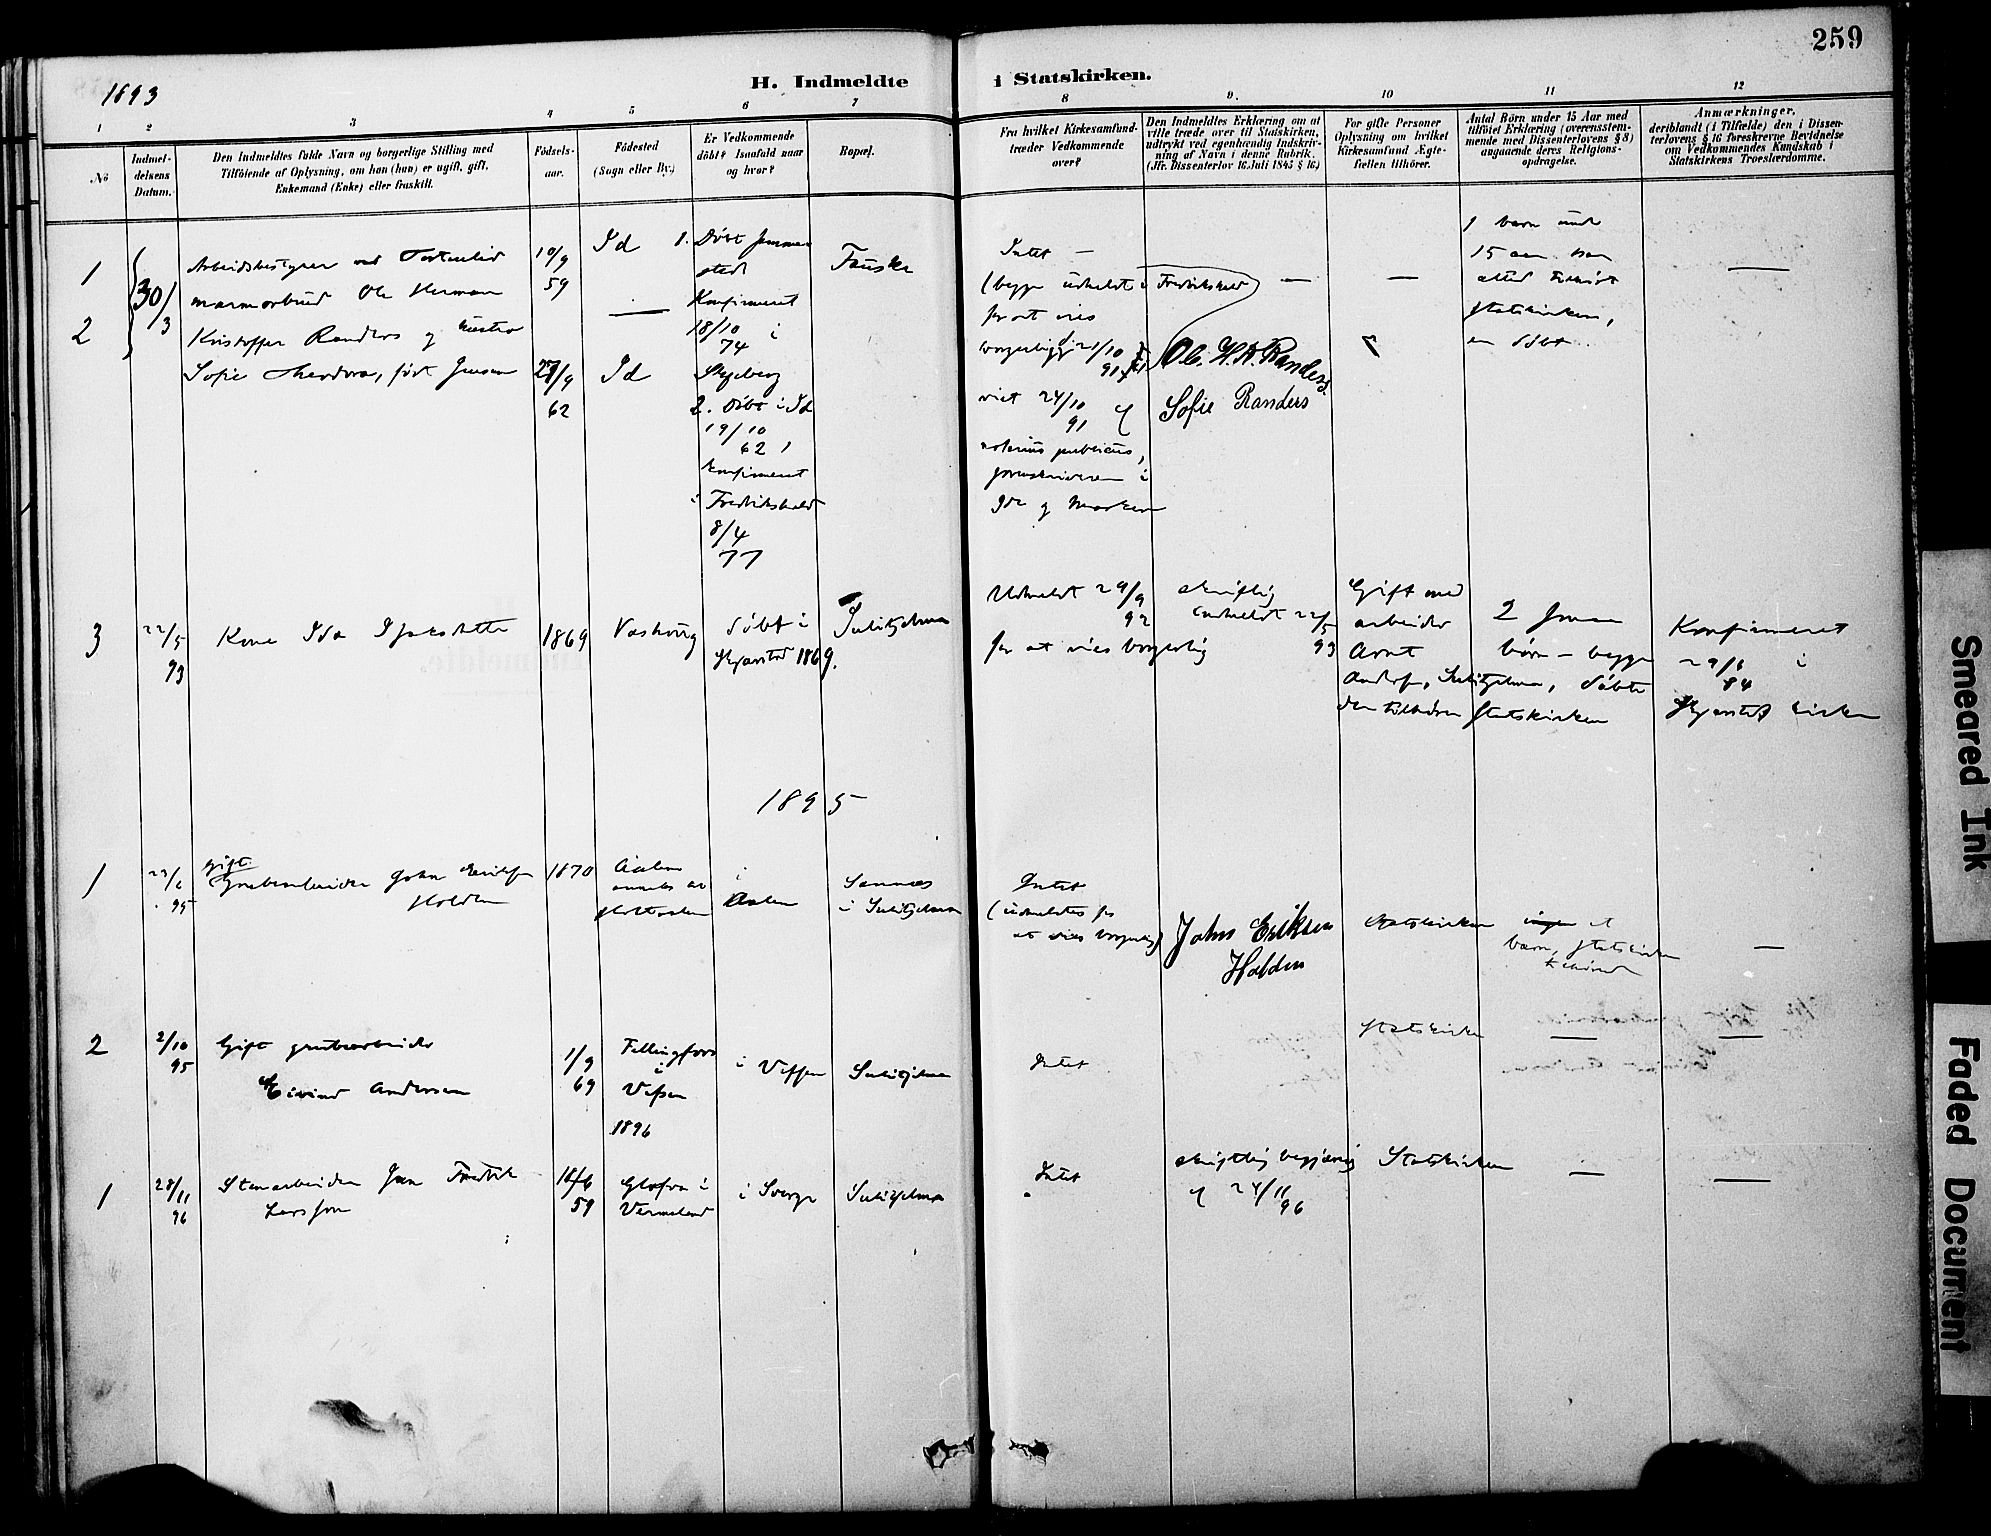 259
1893
H. Indmeldte i Statskirken.
1 2 3 4 5 6 7 8 9. 10 11 12
No
Indmel-
delsens
Datum.
Den Indmeldtes fulde Navn og borgerlige Stilling med
Tilföiende af Oplysning, om han (hun) er ugift, gift,
Enkemand (Enke) eller fraskilt.
Födsels-
aar.
Födested
(Sogn eller By.)
Er Vedkommende
döbt? Isaafald naar
og hvor?
Bopæl.
Fra hvilket Kirkesamfund
træder Vedkommende
over?
Den Indmeldtes Erklæring om at
ville træde over til Statskirken,
udtrykt ved egenhændig Indskriv-
ning af Navn i denne Rubrik.
(Jfr. Dissenterlov 16. Juli 1845 § 16.)
For gifte Personer
Oplysning om hvilket
Kirkesamfund Ægte-
fællen tilhörer.
Antal Börn under 15 Aar med
tilföiet Erklæring (overensstem-
mende med Dissenterlovens § 8)
angaaende deres Religions-
opdragelse.
Anmærkninger,
deriblandt (i Tilfælde) den i Dissen-
terlovens § 16 foreskrevne Bevidnelse
om Vedkommendes Kundskab i
Statskirkens Troeslærdomme.
1
2
30/3
Arbeidsbestyrer ved
marmorbrud Ole Herman
Kristoffer Randers og hustru
Sofie Theodora, født Jensen
10/9
59
27/9
62
Id
Id
1. Døbt samme
sted
Konfirmeret
18/10 i
74
Skjeberg
2. Døbt i Id
19/10
62,
konfirmeret
i Fredrikshald
8/4
77
Fauske
Intet —
(begge udmeldt i Fredrikshald
for at vies
borgerligt 21/10
91)
viet 24/10
91 af
notarius publicus,
sorenskriveren i
Ide og Marker
Ole. H. K. Randers.
Sofie Randers
1 barn under
15 aar som
altid tilhørt
statskirken,
er døbt.
3
22/5
93
Kone Ida
1869
døbt i
Skjerstad 1869.
Sulitjelma
Udmeldt 29/9
92
for at vies borgerlig
skriftlig
indmeldt 22/5
93
Gift med
arbeider
Arnt
Sulitjelma,
der tilhører Statskirken
2 små
børn – begge
døbte
Konfirmeret
29/6 i
84
Skjerstad kirken
1895
1
23/6
95
gift
Grubearbeider John Eriksen
Holden
1870
Aalen
Aalen
Sannæs
i Sulitjelma
Intet
(udmeldtes for
at vies borgerlig)
John Eriksen
Halden
Statskirken
ingen et
barn, statskirken
tilhørende
2
2/10
95
Gift grubearbeider
Eivind Andersen
1/9
69
Fellingfors
i
Vefsen
i Vefsen
Sulitjelma
Intet
Statskirken
1896
1
28/11
96
Stenarbeider Jan Fredrik
Larsson
16/6
59
Glafva i
Vermeland
i Sverge
Sulitjelma
Intet
skriftlig begjæring
af 24/11
96
Statskirken
Smeared Ink
Faded Document